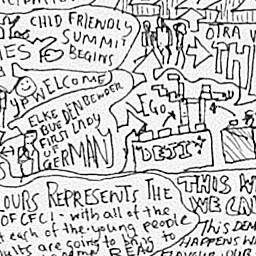 CHILD FRIENDLY
SUMMIT
BEGINS
IES
OTRA
TH
WELCOME
ELKE
BUDENBENDER
FIRST LADY
OF
GERMANY
EGO
"DEJI"
OURS REPRESENTS THE
OF CFCI - with all of the
each of the young people
ults are going to bring to
READ
THIS W
WE CAN
THIS DEM
HAPPENS W
FLAVOUR OUR